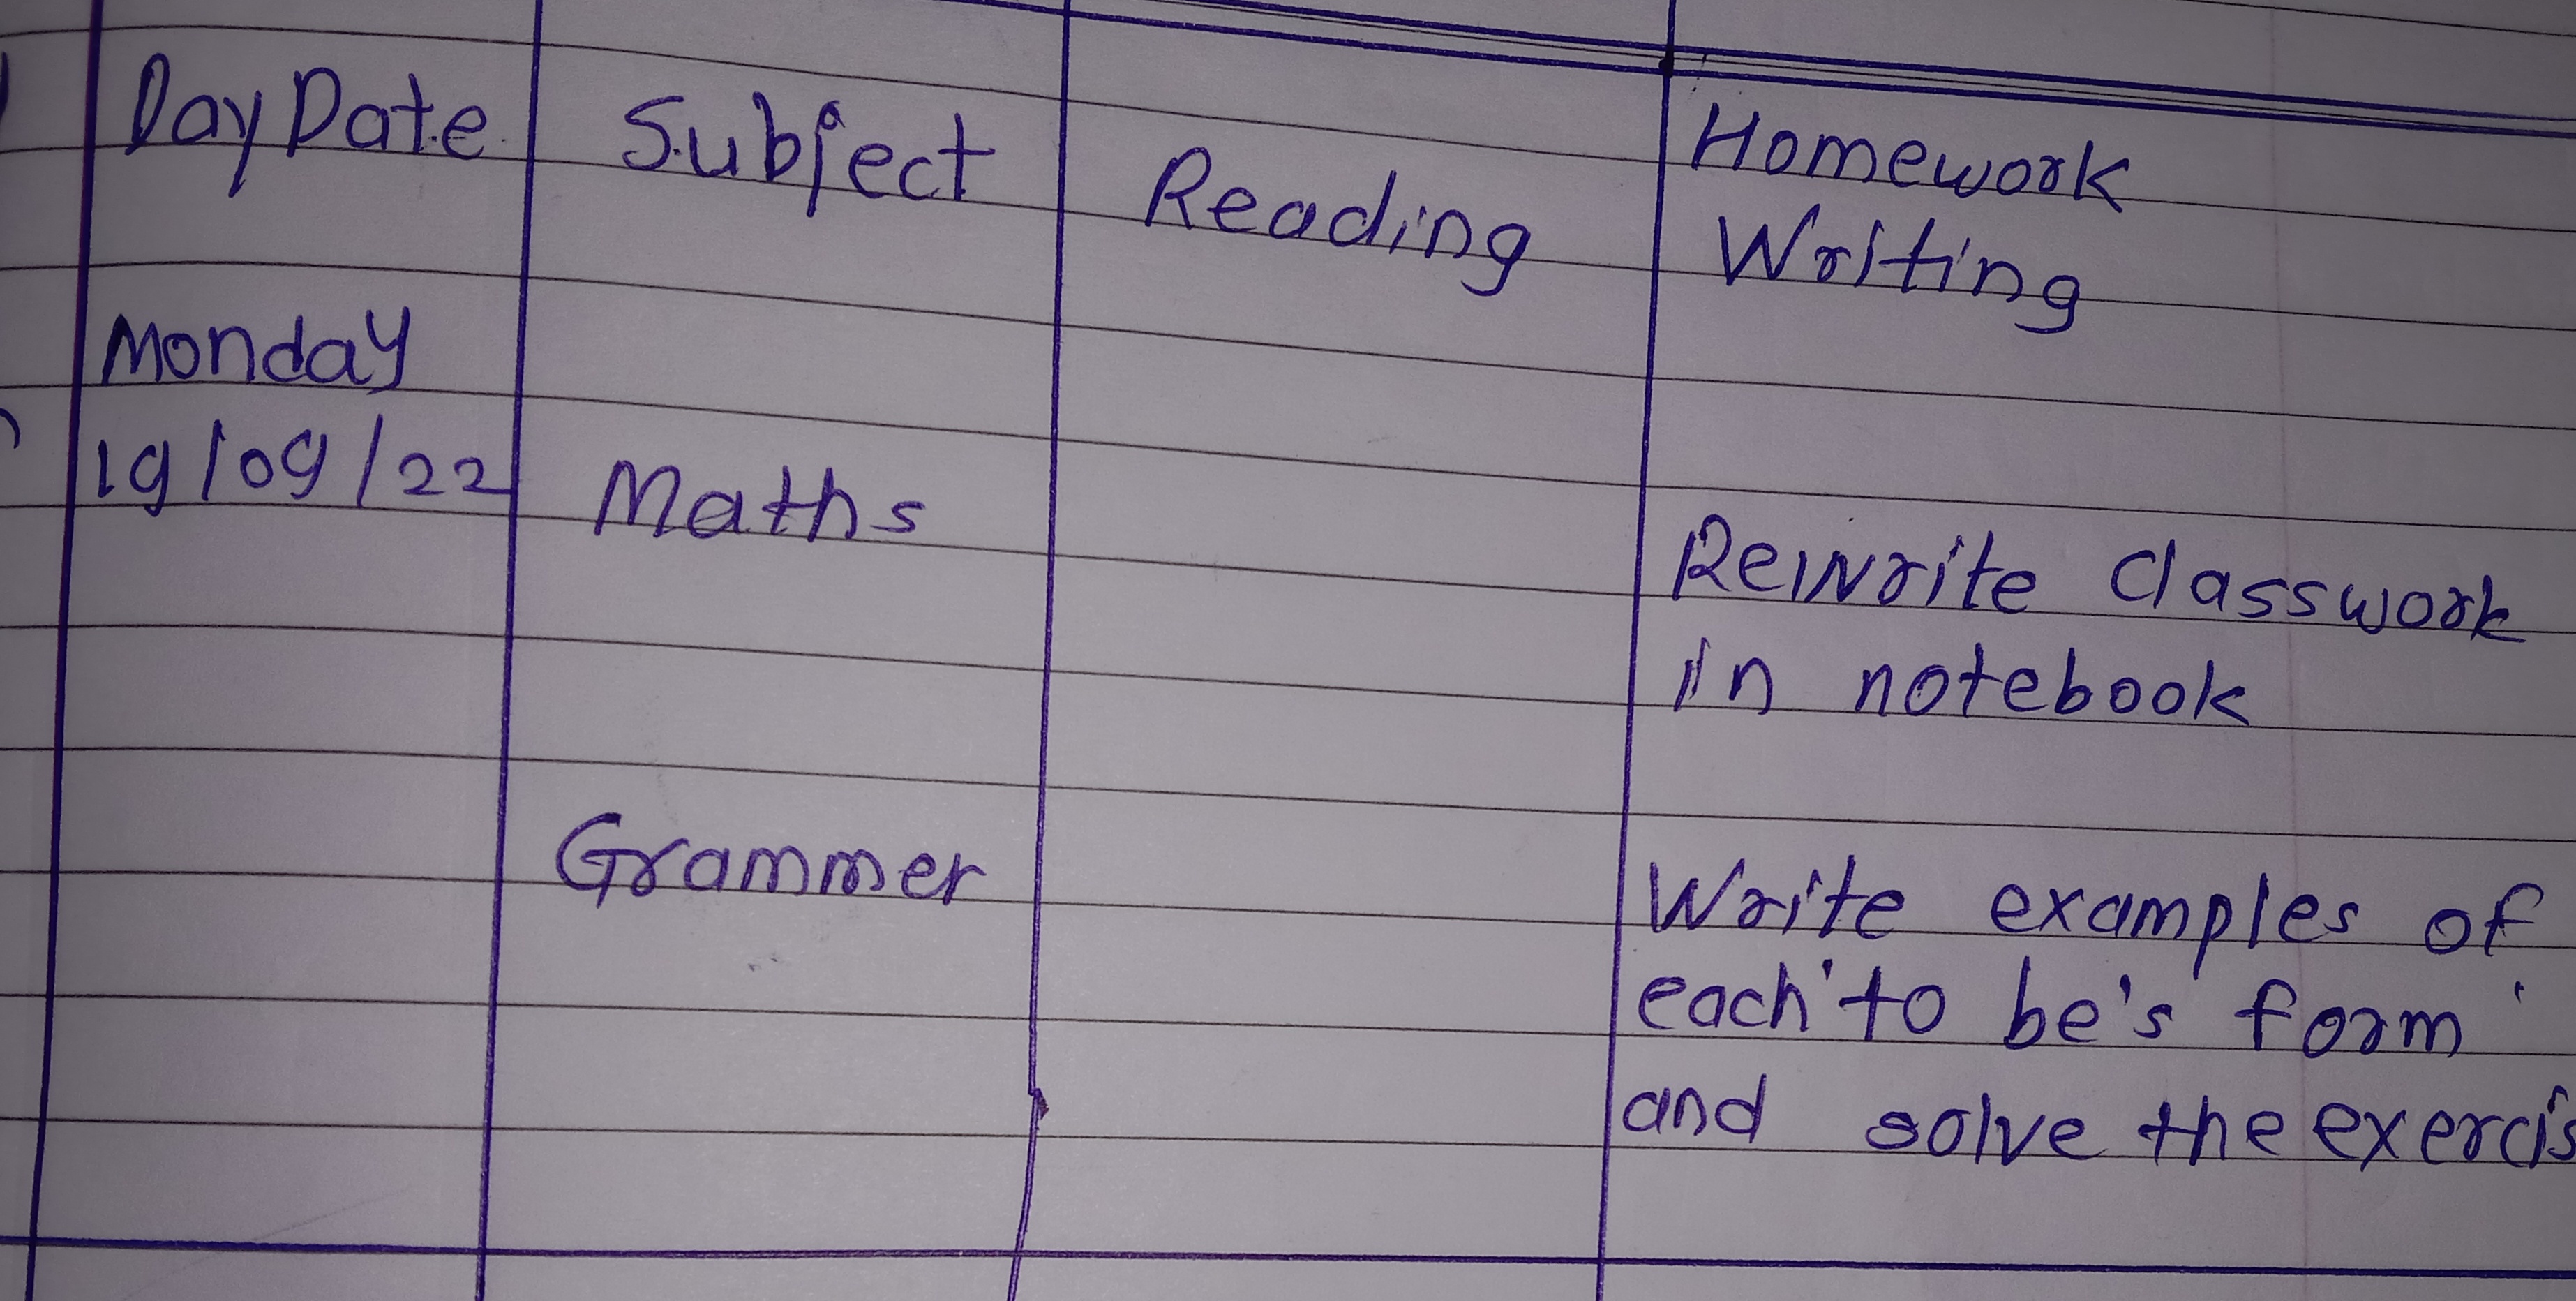 Day Date Subject Reading Homework
Writing
Monday
19/09/22 Maths
Rewrite classwork
in notebook
Grammer
Write examples of
each 'to be's form'
and solve the exercis